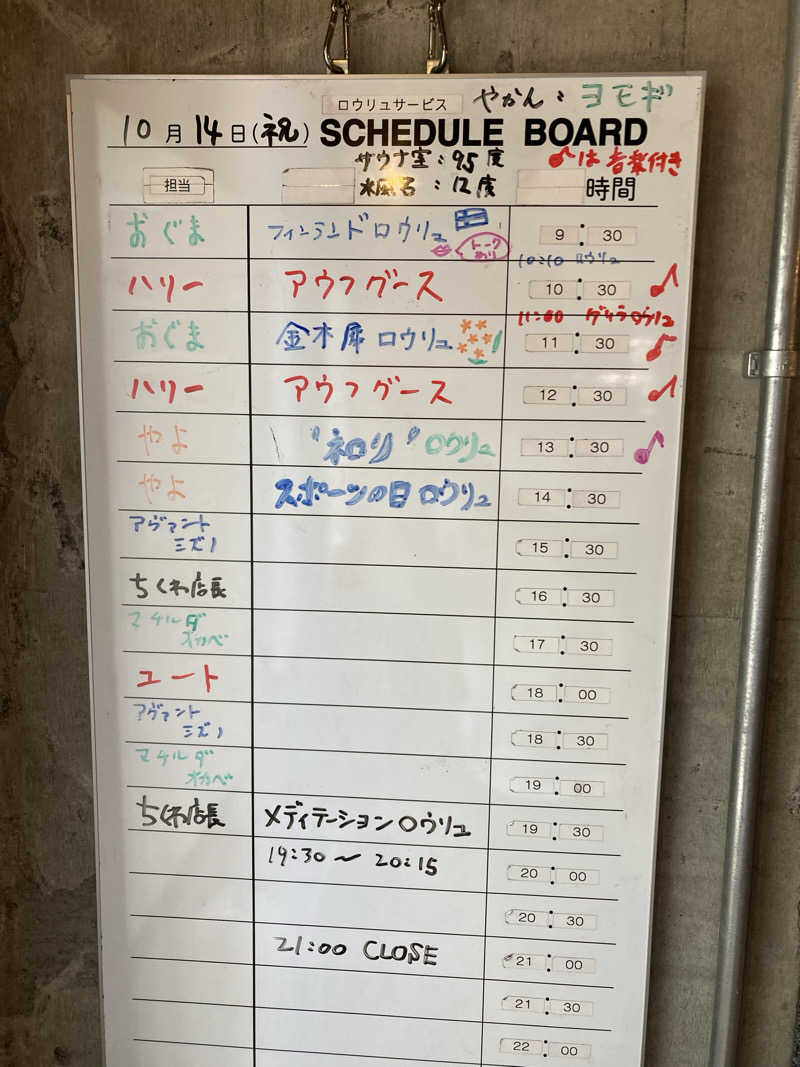 ロウリュサービス やかん：ヨモギ
10月14日(祝) SCHEDULE BOARD
サウナ室：95度 ♪は音楽付き
担当 水風呂：12度 時間
おぐま フィンランドロウリュ トークあり 9:30
10:10 ロウリュ
ハリー アウフグース 10:30 ♪
11:00 ゲリラロウリュ
おぐま 金木犀ロウリュ 11:30 ♪
ハリー アウフグース 12:30 ♪
やよ "ネロリ"ロウリュ 13:30 ♪
やよ スポーツの日ロウリュ 14:30
アヴァント
ミズノ 15:30
ちくわ店長 16:30
マチルダ
オカベ 17:30
ユート 18:00
アヴァント
ミズノ 18:30
マチルダ
オカベ 19:00
ちくわ店長 メディテーションロウリュ 19:30
19:30〜20:15 20:00
20:30
21:00 CLOSE 21:00
21:30
22:00